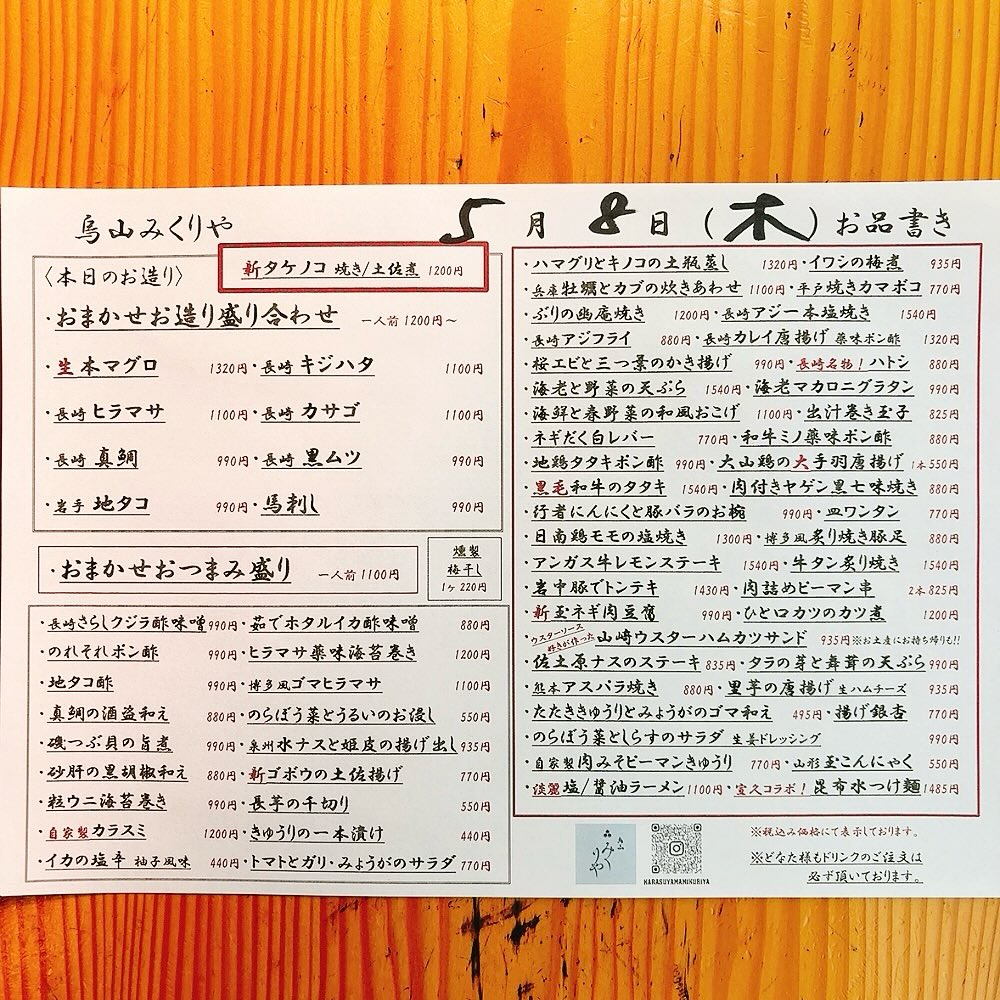 烏山みくりや
5月8日(木)お品書き
〈本日のお造り〉
新タケノコ 焼き/土佐煮 1200円
・おまかせお造り盛り合わせ 一人前1200円～
・生本マグロ 1320円・長崎キジハタ 1100円
・長崎ヒラマサ 1100円・長崎カサゴ 1100円
・長崎真鯛 990円・長崎黒ムツ 990円
・岩手地タコ 990円・馬刺し 990円
・おまかせおつまみ盛り 一人前1100円
燻製
梅干し
1ヶ220円
・長崎さらしクジラ酢味噌 990円・茹でホタルイカ酢味噌 880円
・のれそれポン酢 990円・ヒラマサ薬味海苔巻き 1200円
・地タコ酢 990円・博多風ゴマヒラマサ 1100円
・真鯛の酒盗和え 880円・のらぼう菜とうるいのお浸し 550円
・磯つぶ貝の旨煮 990円・泉州水ナスと姫皮の揚げ出し 935円
・砂肝の黒胡椒和え 880円・新ゴボウの土佐揚げ 770円
・粒ウニ海苔巻き 990円・長芋の千切り 550円
・自家製カラスミ 1200円・きゅうりの一本漬け 440円
・イカの塩辛 柚子風味 440円・トマトとガリ・みょうがのサラダ 770円
・ハマグリとキノコの土瓶蒸し 1320円・イワシの梅煮 935円
・兵庫牡蠣とカブの炊きあわせ 1100円・平戸焼きカマボコ 770円
・ぶりの幽庵焼き 1200円・長崎アジ一本塩焼き 1540円
・長崎アジフライ 880円・長崎カレイ唐揚げ 薬味ポン酢 1320円
・桜エビと三つ葉のかき揚げ 990円・長崎名物!ハトシ 880円
・海老と野菜の天ぷら 1540円・海老マカロニグラタン 990円
・海鮮と春野菜の和風おこげ 1100円・出汁巻き玉子 825円
・ネギだく白レバー 770円・和牛ミノ薬味ポン酢 880円
・地鶏タタキポン酢 990円・大山鶏の大手羽唐揚げ 1本550円
・黒毛和牛のタタキ 1540円・肉付きヤゲン黒七味焼き 880円
・行者にんにくと豚バラのお椀 990円・皿ワンタン 770円
・日南鶏モモの塩焼き 1300円・博多風炙り焼き豚足 880円
・アンガス牛レモンステーキ 1540円・牛タン炙り焼き 1540円
・岩中豚でトンテキ 1430円・肉詰めピーマン串 2本825円
・新玉ネギ肉豆腐 990円・ひと口カツのカツ煮 1200円
・ウスターソース好きが作った 山崎ウスターハムカツサンド 935円※お土産にお持ち帰りも!!
・佐土原ナスのステーキ 835円・タラの芽と舞茸の天ぷら 990円
・熊本アスパラ焼き 880円・里芋の唐揚げ 生ハムチーズ 935円
・たたききゅうりとみょうがのゴマ和え 495円・揚げ銀杏 770円
・のらぼう菜としらすのサラダ 生姜ドレッシング 990円
・自家製肉みそピーマンきゅうり 770円・山形玉こんにゃく 550円
・淡麗塩/醤油ラーメン 1100円・宣久コラボ!昆布水つけ麺 1485円
みくりや
KARASUYAMAMIKURIYA
※税込み価格にて表示しております。
※どなた様もドリンクのご注文は
必ず頂いております。